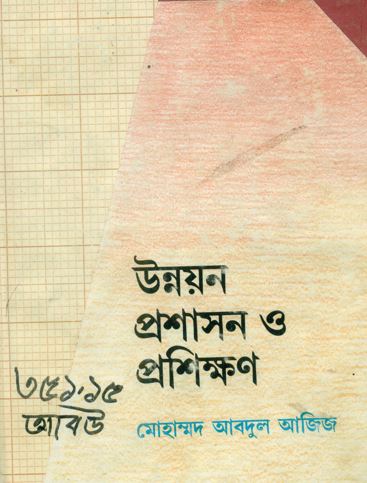 উন্নয়ন
প্রশাসন ও
প্রশিক্ষণ
৩৫১.১৫
আবউ
মোহাম্মদ আবদুল আজিজ